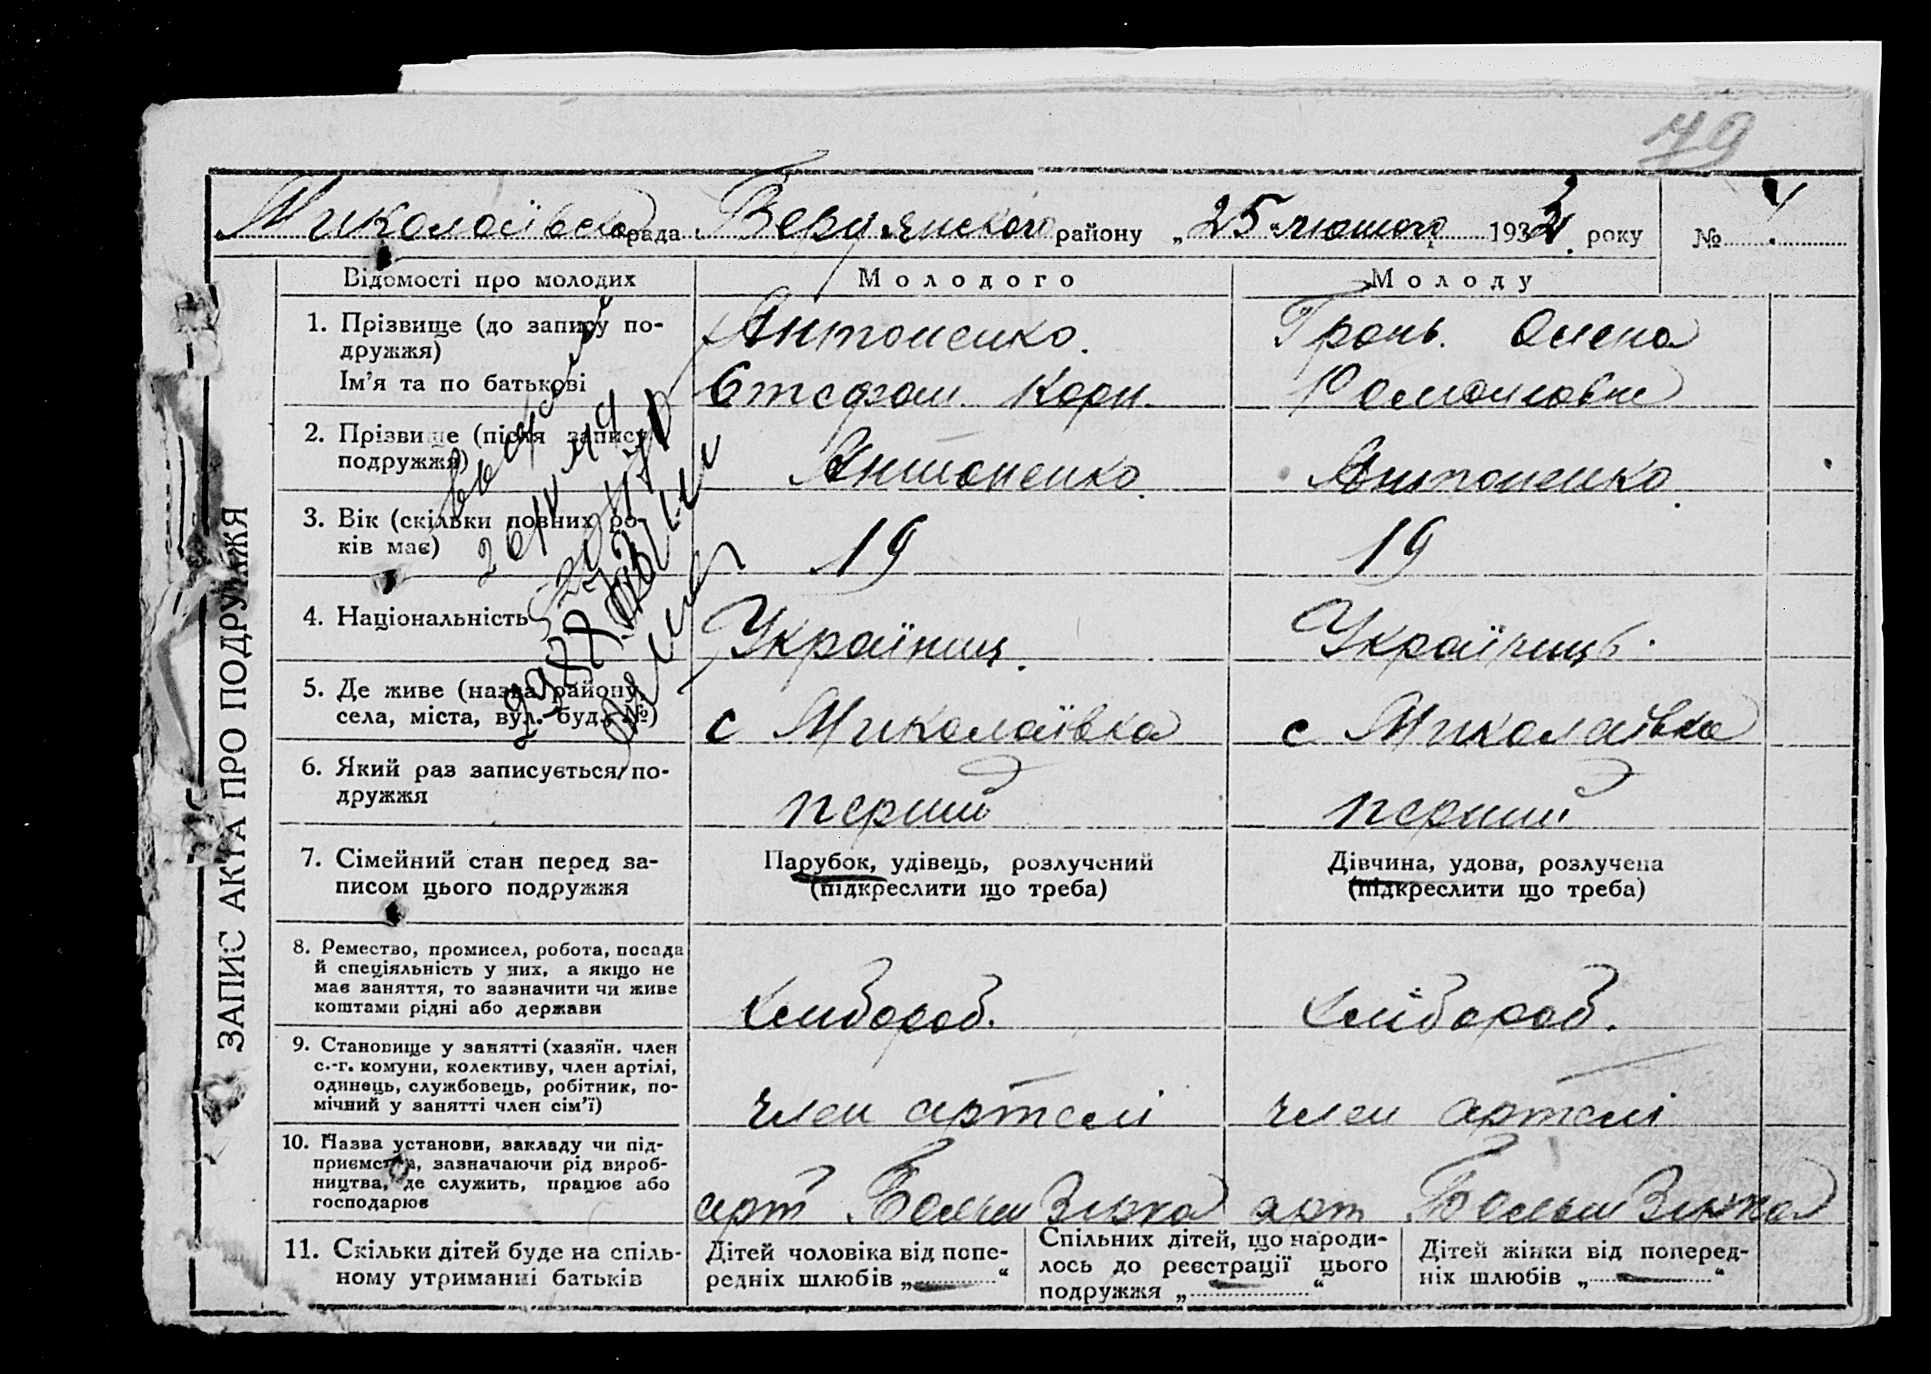 79
Миколаївська рада Бердянского району „25 лютого 1932 року № 4
Відомості про молодих
Молодого
Молоду
1. Прізвище (до запису по-
дружжя)
Ім’я та по батькові
Антоненко.
Стефан Корн.
Гронь. Олена
Романовне
2. Прізвище (після запису
подружжя)
Антоненко.
Антоненко.
3. Вік (скільки повних ро-
ків має)
19
19
4. Національність
Українец.
Українць.
5. Де живе (назва району,
села, міста, вул. буд. №)
с Миколаївка
с Миколаївка
6. Який раз записується по-
дружжя
перший
перший
7. Сімейний стан перед за-
писом цього подружжя
Парубок, удівець, розлучений
(підкреслити що треба)
Дівчина, удова, розлучена
(підкреслити що треба)
8. Ремество, промисел, робота, посада
й спеціяльність у них, а якщо не
має заняття, то зазначити чи живе
коштами рідні або держави
хлибороб.
хлібороб.
9. Становище у занятті (хазяїн. член
с.-г. комуни, колективу, член артілі,
одинець, службовець, робітник, по-
мічний у занятті член сім’ї)
член артелі
член артелі
10. Назва установи, закладу чи під-
приємства, зазначаючи рід вироб-
ництва, де служить, працює або
господарює
арт Больш Зірка
арт Больш Зірка
11. Скільки дітей буде на спіль-
ному утриманні батьків
Дітей чоловіка від попе-
редніх шлюбів „ — “
Спільних дітей, що народи-
лось до реєстрації цього
подружжя „ — “
Дітей жінки від поперед-
ніх шлюбів „ — “
ЗАПИС АКТА ПРО ПОДРУЖЖЯ